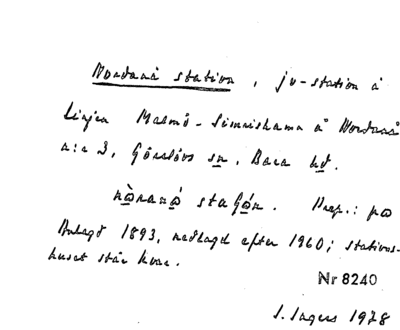 Nordanå station, jv-station å
Linjen Malmö - Simrishamn å Nordanå
n:r 3, Görslövs sn, Bara hd.
nòraná staʃón. Prep.: på
Anlagd 1893, nedlagd efter 1960; stations-
huset står kvar.
Nr 8240
S. Ingers 1978